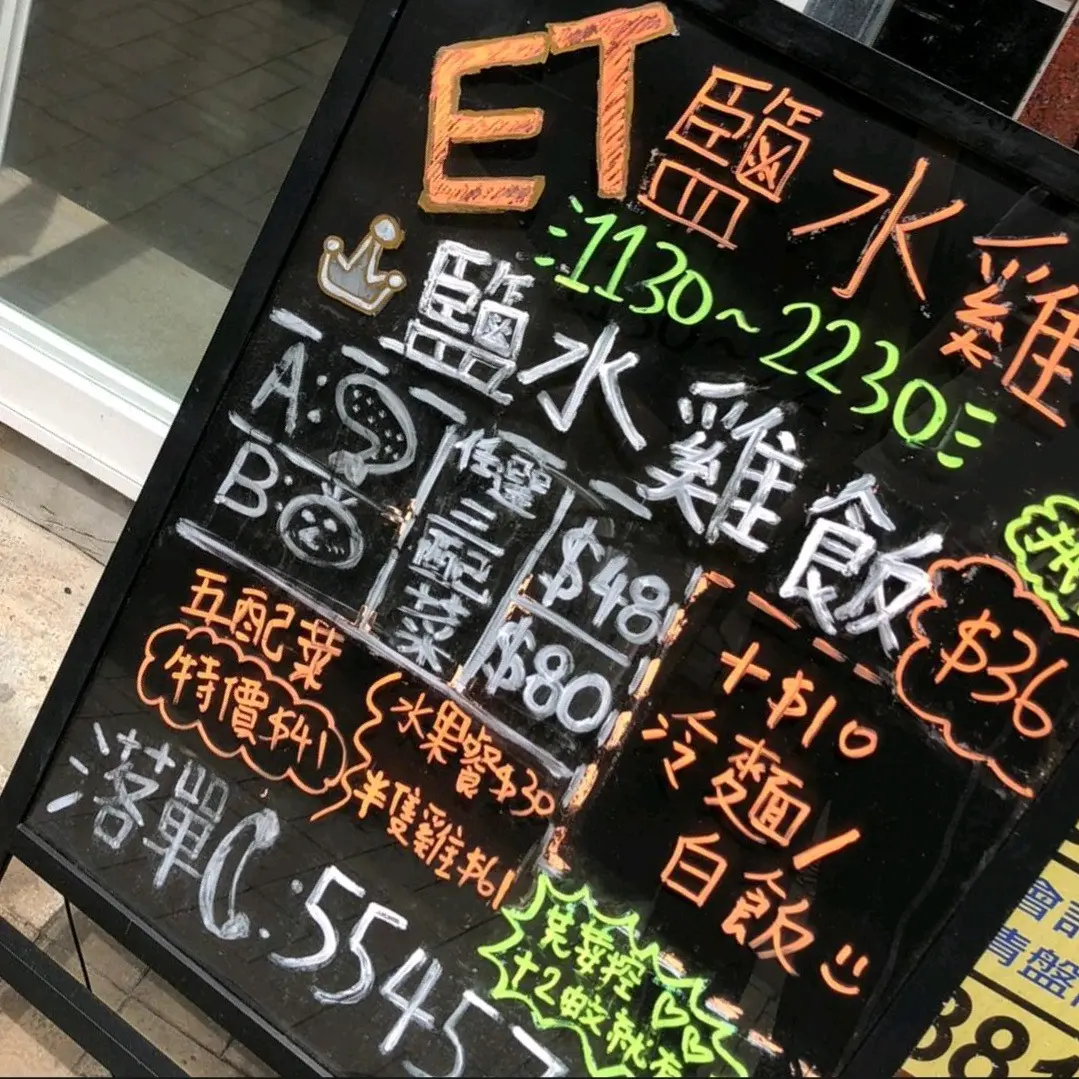 ET鹽水雞
1130~2230
鹽水雞飯
$36
A:
B:
任選三配菜
$48
$80
+$10
冷麵/
白飯
五配菜
特價$41
水果餐$30
半隻雞$61
落單
:5545
芫荽控
+2蚊就有